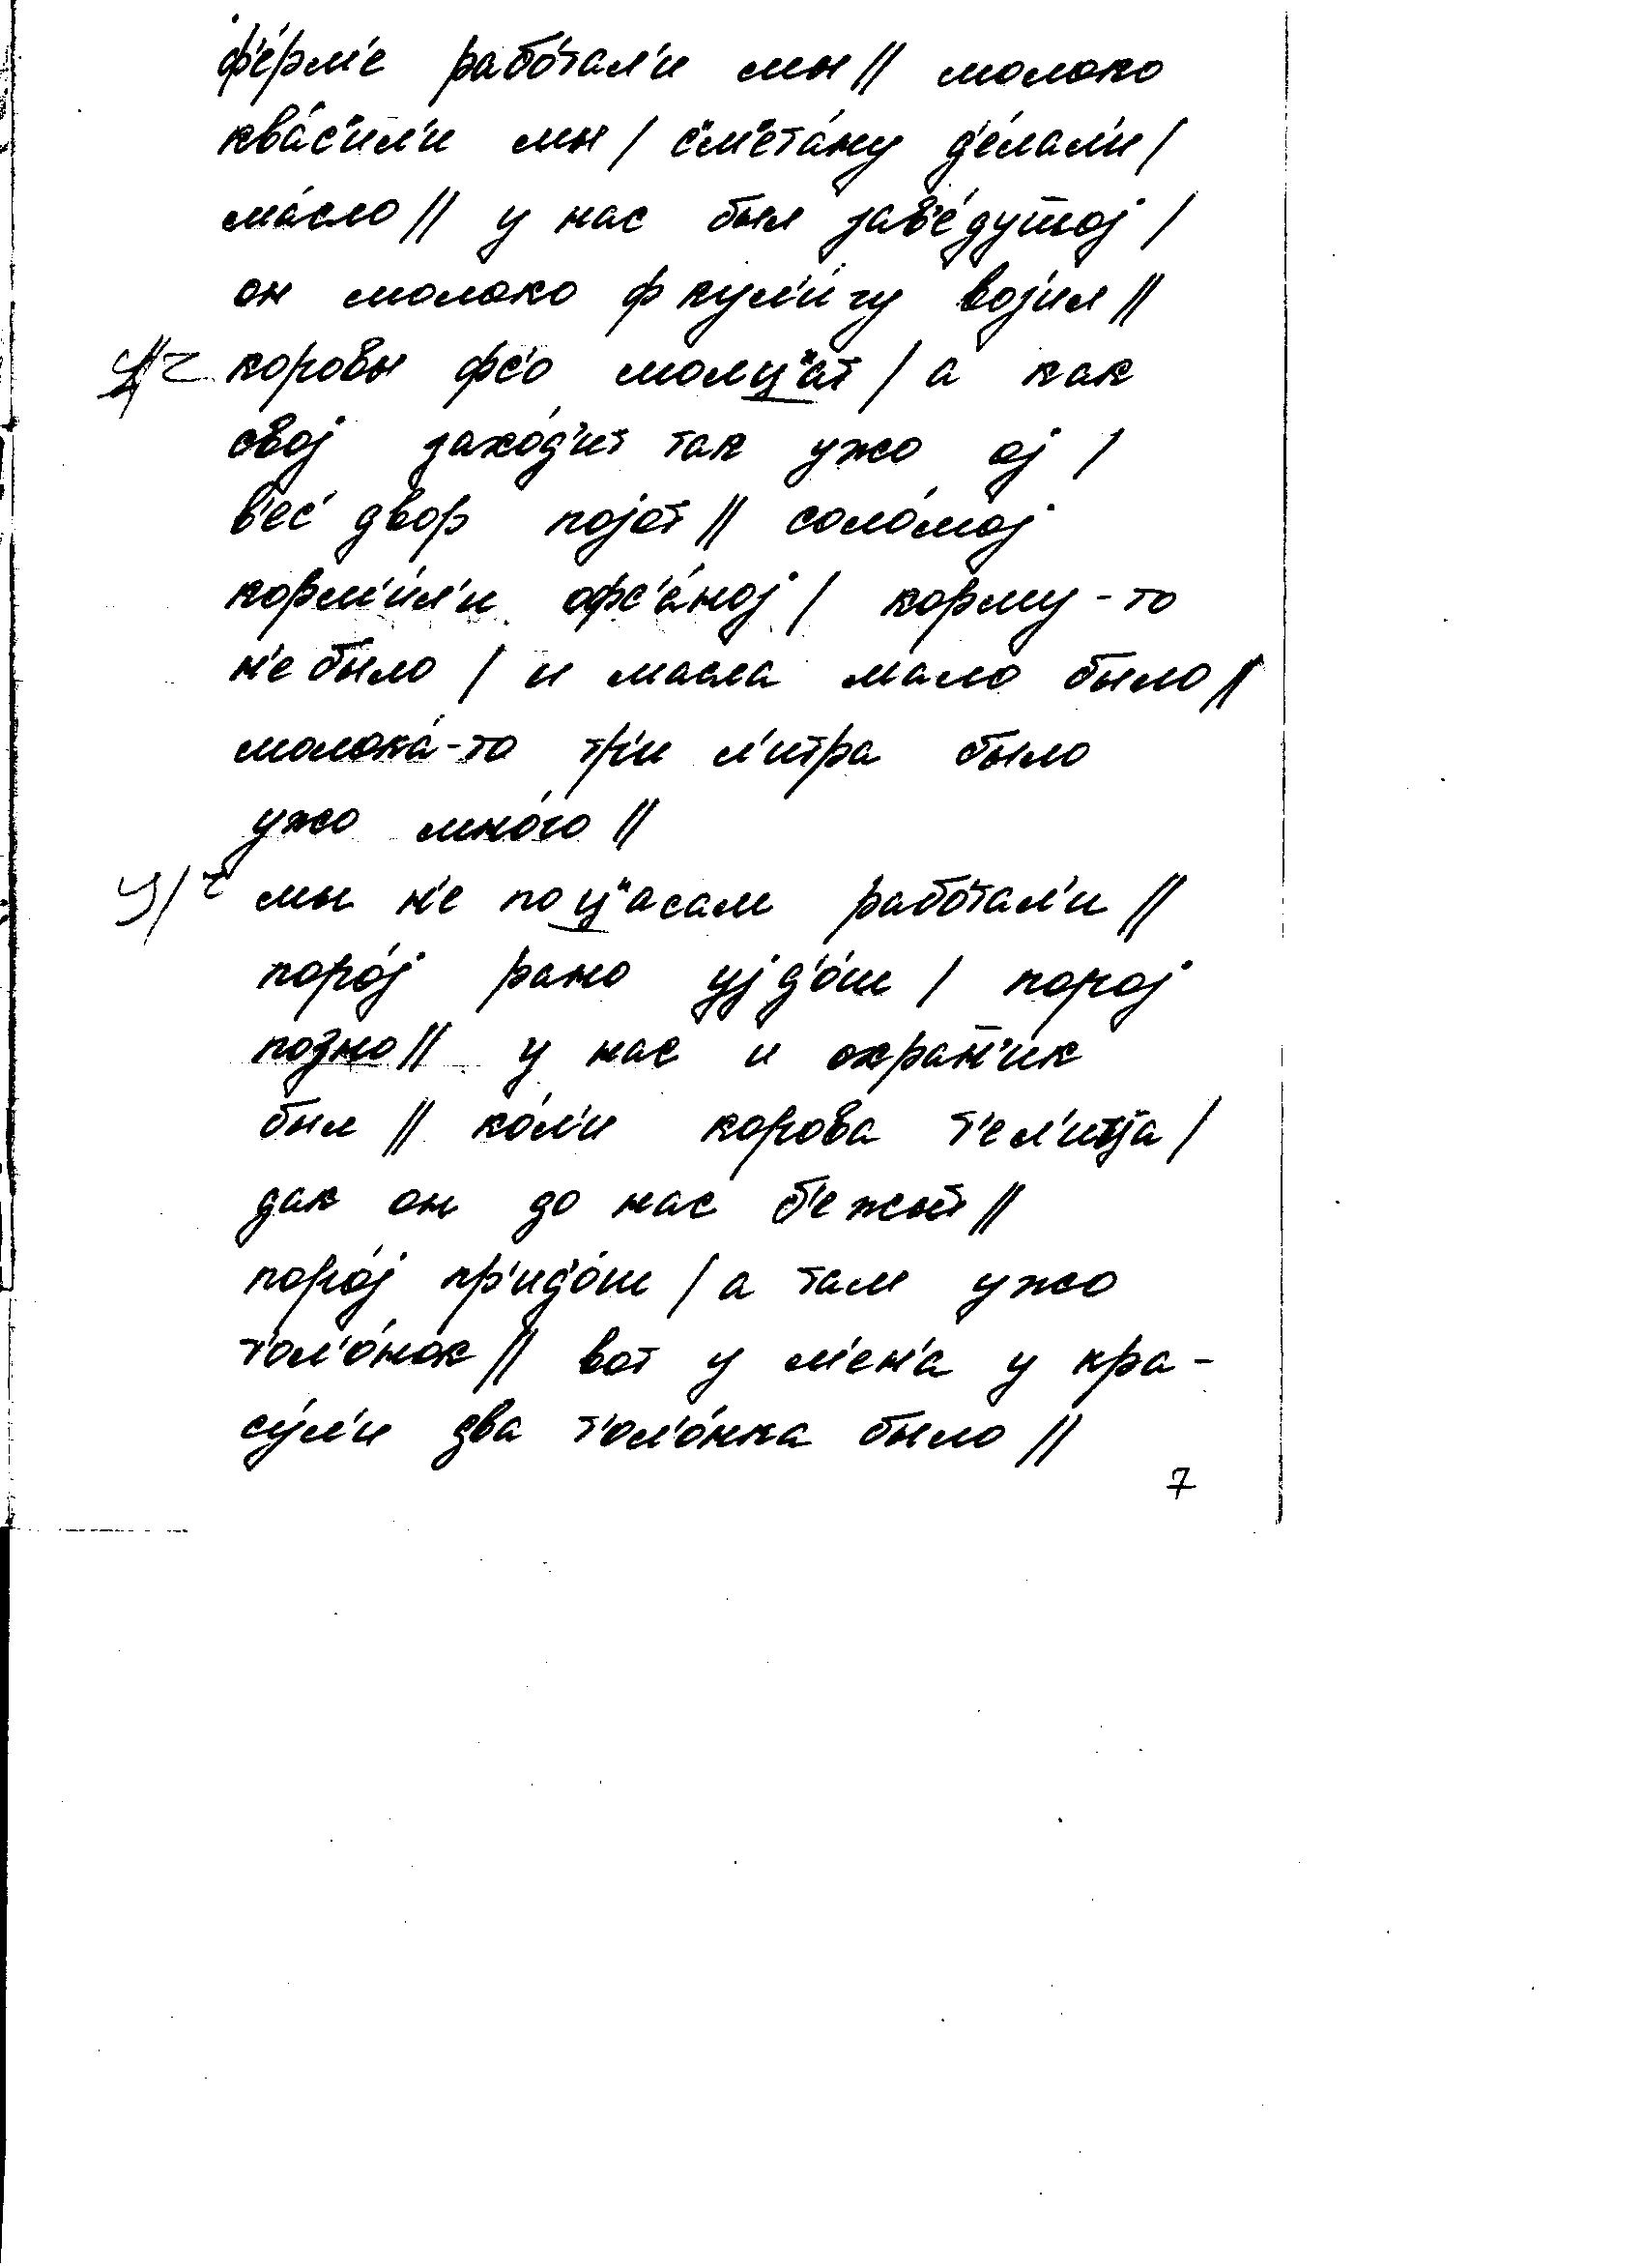 ф'е́рм'е рабо́тал'и мы // молоко
ква́с"ил'и мы / с"м"ета́ну д'е́лал'и /
ма́сло // у нас был зав'е́душ̄ој /
он молоко ф кул'и́гу воз'ил //
ц"/ч коровы фс'о молц"ат / а как
свој захо́д'ит так ужо ој /
в'ес' двор појот // соло́мој
корм'и́л'и офс'а́ној / корму-то
н'е было / и масла мало было //
молока́-то тр'и л'итра было
ужо мно́го //
ц/ч мы н'е по ц"асам рабо́тал'и //
поро́ј рано ујд'о́ш / порој
позно // у нас и охран̄'ик
был // ко́л'и корова т'ел'итца /
дак он до нас б'ежыт //
поро́ј пр'ид'о́ш / а там ужо
т'ол'о́нок // вот у м'ен'а у кра-
су́л'и два т'ол'о́нка было //
7